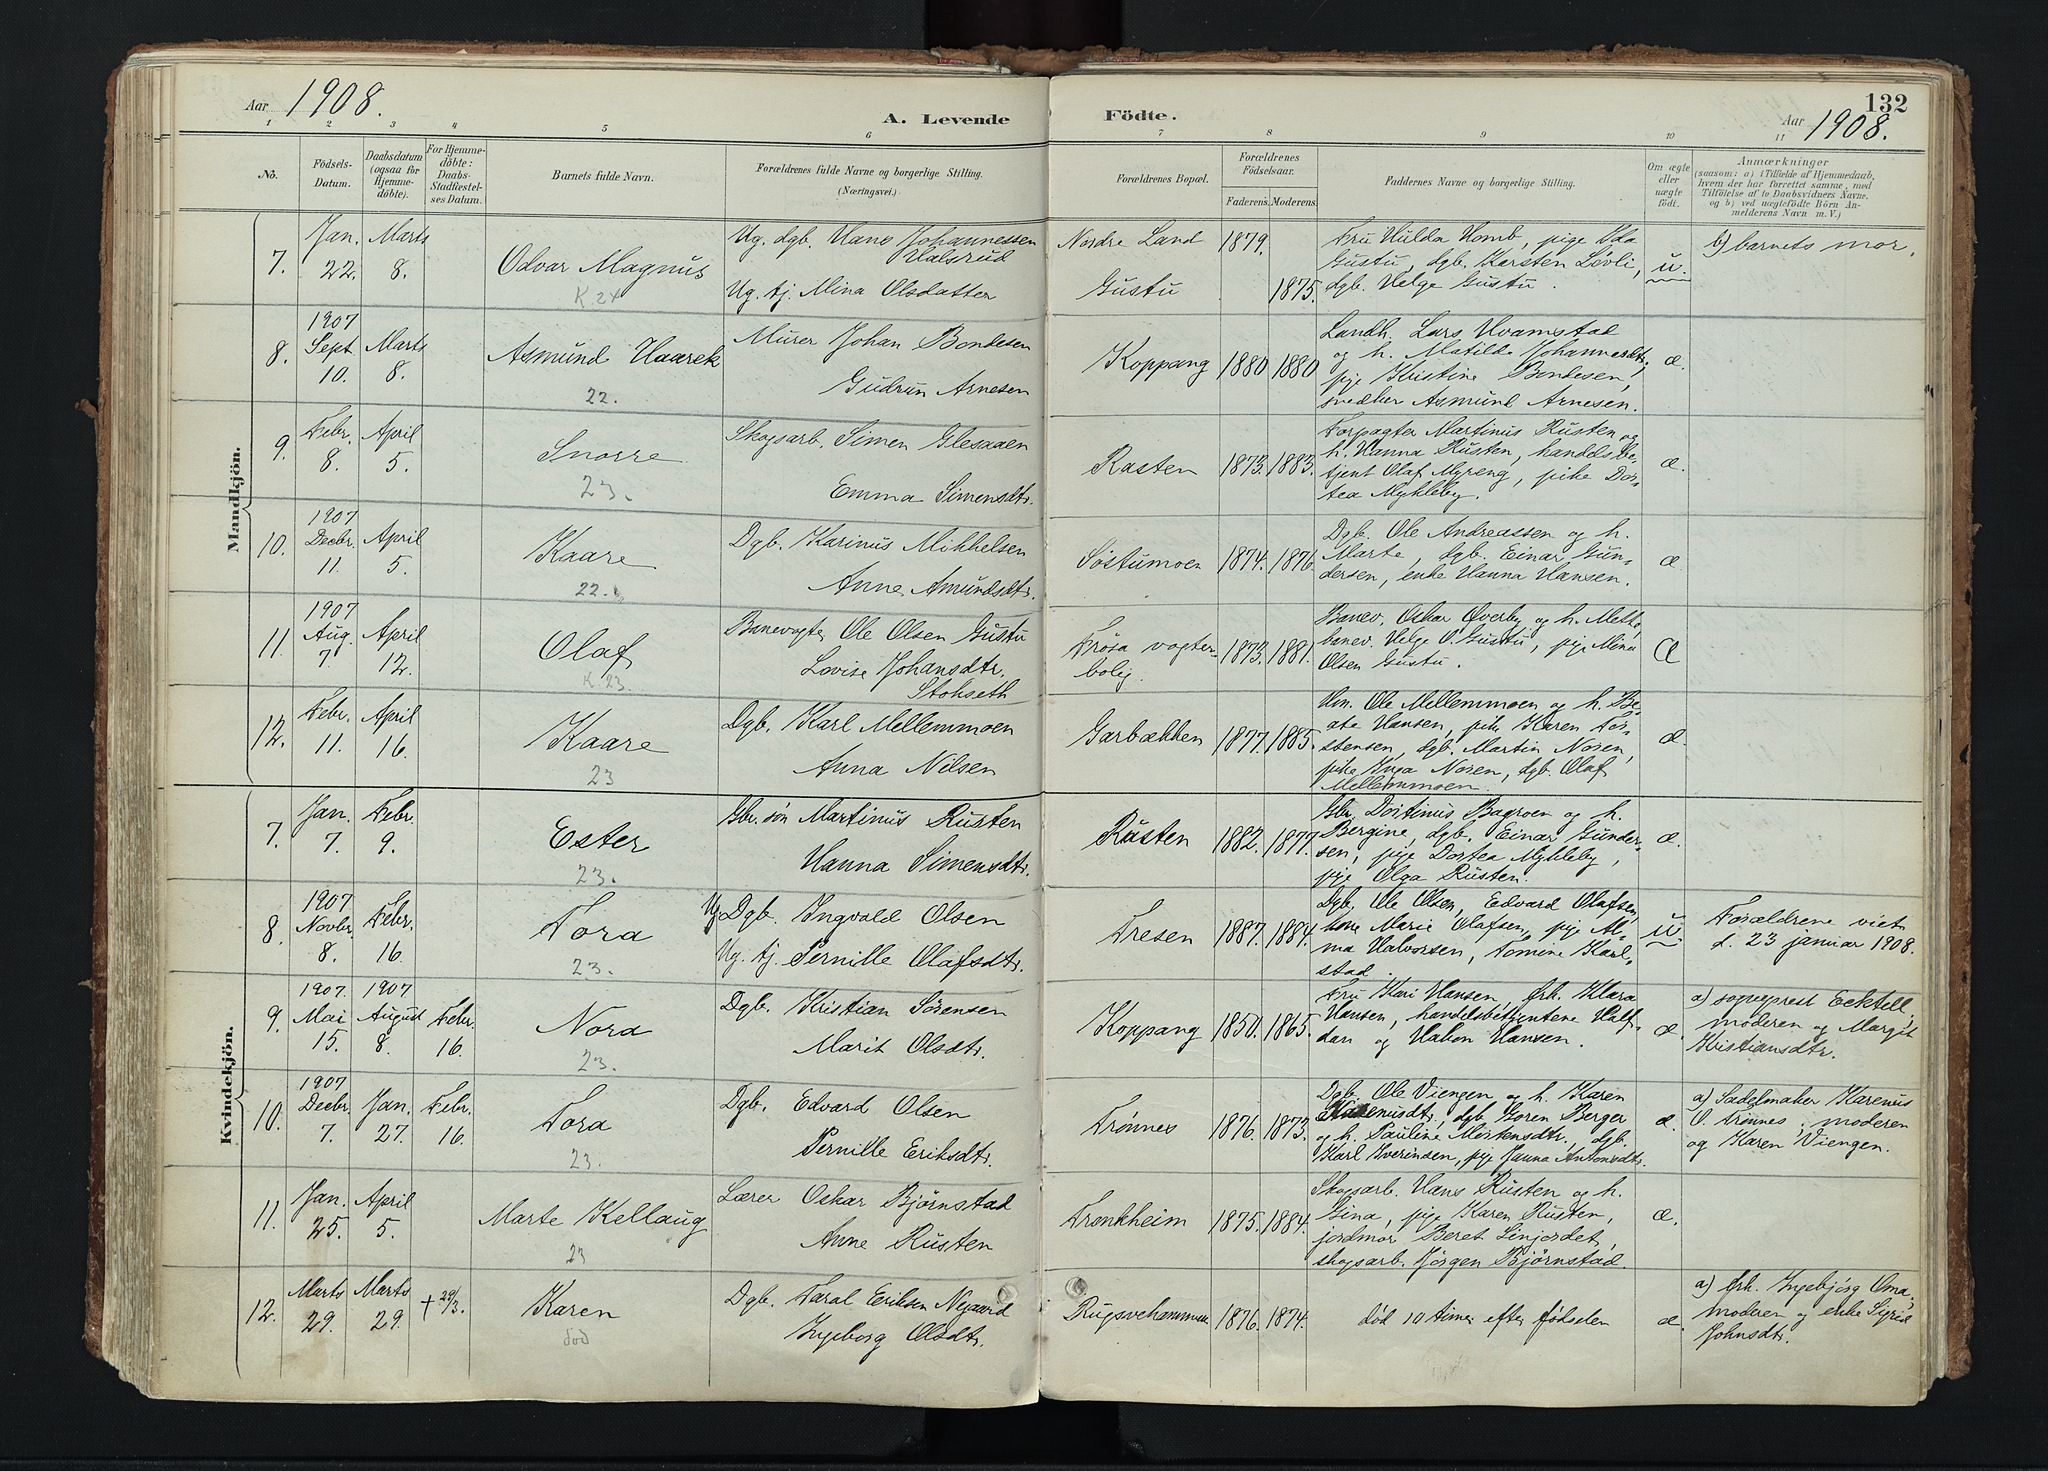 Aar 1908.
A. Levende
Födte.
132
Aar 1908.
1 2 3 4 5 6 7 8 9 10 11
No.
Födsels-Datum.
Daabsdatum (ogsaa for Hjemmedöbte).
For Hjemmedöbte: Daabs-Stadfæstelses Datum.
Barnets fulde Navn.
Forældrenes fulde Navne og borgerlige Stilling. (Næringsvei.)
Forældrenes Bopæl.
Forældrenes Födselsaar.
Faderens. Moderens.
Faddernes Navne og borgerlige Stilling.
Om ægte eller uægte födt.
Anmærkninger
(saasom: a) i Tilfælde af Hjemmedaab,
hvem der har forrettet samme, med
Tilföielse af to Daabsvidners Navne,
og b) ved uægtefödte Börn Anmelderens Navn m.V.)
Mandkjön.
7. Jan. 22. Marts 8.
Odvar Magnus
K 24
Ug. dgb. Hans Johannessen
Halsrud
Ug. tj. Mina Olsdatter
Nordre Land 1879.
Gustu 1875.
Fru Hulda Homb, pige Ida
Gustu, dgb. Karsten Løvli,
dgb. Helge Gustu.
u.
b) barnets mor.
8. 1907 Sept. 10. Marts 8.
Asmund Haarek
22.
Murer Johan Bondesen
Gudrun Arnesen
Koppang 1880 1880
Landh. Lars Hvamstad
og h. Matilde Johannesdtr.,
pige Kristine Bondesen,
snedker Asmund Arnesen.
æ.
9. Febr. 8. April 5.
Snorre
23.
Skogsarb. Simen Glesaaen
Emma Simensdtr.
Rasten 1873. 1883.
Forpagter Martinus Rusten og
h. Hanna Rusten, handelsbe-
tjent Olaf Myreng, pike Dor-
tea Mykleby.
æ.
10. 1907 Decbr. 11. April 5.
Kaare
22.
Dgb. Karinus Mikkelsen
Anne Amundsdtr.
Søstumoen 1874. 1876.
Dgb. Ole Andreassen og h.
Marte, dgb. Einar Gun-
dersen, enke Hanna Hansen.
æ
11. 1907 Aug. 7. April 12.
Olaf
K 23.
Banevogter Ole Olsen Gustu
Lovise Johansdtr.
Stokseth
Trøsa vogter-
bolig. 1873. 1881.
Banev. Oskar Øverby og h. Mette,
banev. Helge O. Gustu, pige Mina
Olsen Gustu.
Æ
12. Febr. 11. April 16.
Kaare
23
Dgb. Karl Mellemmoen
Anna Nilsen
Garbækken 1877. 1885.
Hm. Ole Mellemmoen og h. Be-
ate Hansen, pike Karen Tor-
stensen, dgb. Martin Noren,
pike Inga Noren, dgb. Olaf
Mellemmoen.
æ.
Kvindekjön.
7. Jan. 7. Febr. 9.
Ester
23.
Gbr. søn Martinus Rusten
Hanna Simensdtr.
Rusten 1882. 1877.
Gbr. Dortinus Bagroen og h.
Bergine, dgb. Einar Gunder-
sen, pige Dortea Mykleby,
pige Olga Rusten.
æ.
8. 1907 Novbr. 8. Febr. 16
Tora
23.
Ug Dgb. Ingvald Olsen
Ug. tj. Pernille Olafsdtr.
Tresen 1887. 1884.
Dgb. Ole Olsen, Edvard Olafsen,
kone Marie Olafsen, pige Al-
ma Halvorsen, Tomine Karl-
stad.
u
Forældrene viet
d. 23 januar 1908.
9. 1907. Mai 15. 1907 August 8. Febr. 16.
Nora
23.
Dgb. Kristian Sørensen
Marit Olsdtr.
Koppang 1850. 1865.
Fru Kari Hansen, frk. Klara
Hansen, handelsbetjentene Half-
dan og Hakon Hansen.
æ.
a) sogneprest Ecktell,
moderen og Margit
Kristiansdtr.
10. 1907 Decbr. 7. Jan. 27. Febr. 16.
Tora
23.
Dgb. Edvard Olsen
Pernille Eriksdtr.
Trønnes 1876. 1873.
Dgb. Ole Viengen og h. Karen
dgb. Koren Berger
og h. Pauline Mortensdtr., dgb.
Karl Iverinsen, pige Janna Antonsdtr.
æ.
a) Sadelmaker Karenus
O. Trønnes, moderen
og Karen Viengen.
11. Jan. 25. April 5.
Marte Kellaug
23
Lærer Oskar Bjørnstad
Anne Rusten
Trønkheim 1875. 1884.
Skogsarb. Hans Rusten og h.
Gina, pige Karen Rusten,
jordmor Beret Linjordet,
skogsarb. Jørgen Bjørnstad.
æ.
12. Marts 29. Marts 29. + 29/3.
Karen
død
Dgb. Taral Eriksen Nygaard
Ingeborg Olsdtr.
Rugsvehammeren 1876. 1874.
død 10 timer efter fødselen
æ.
a) frk. Ingebjørg Oma,
moderen og enke Sigrid
Johnsdtr.